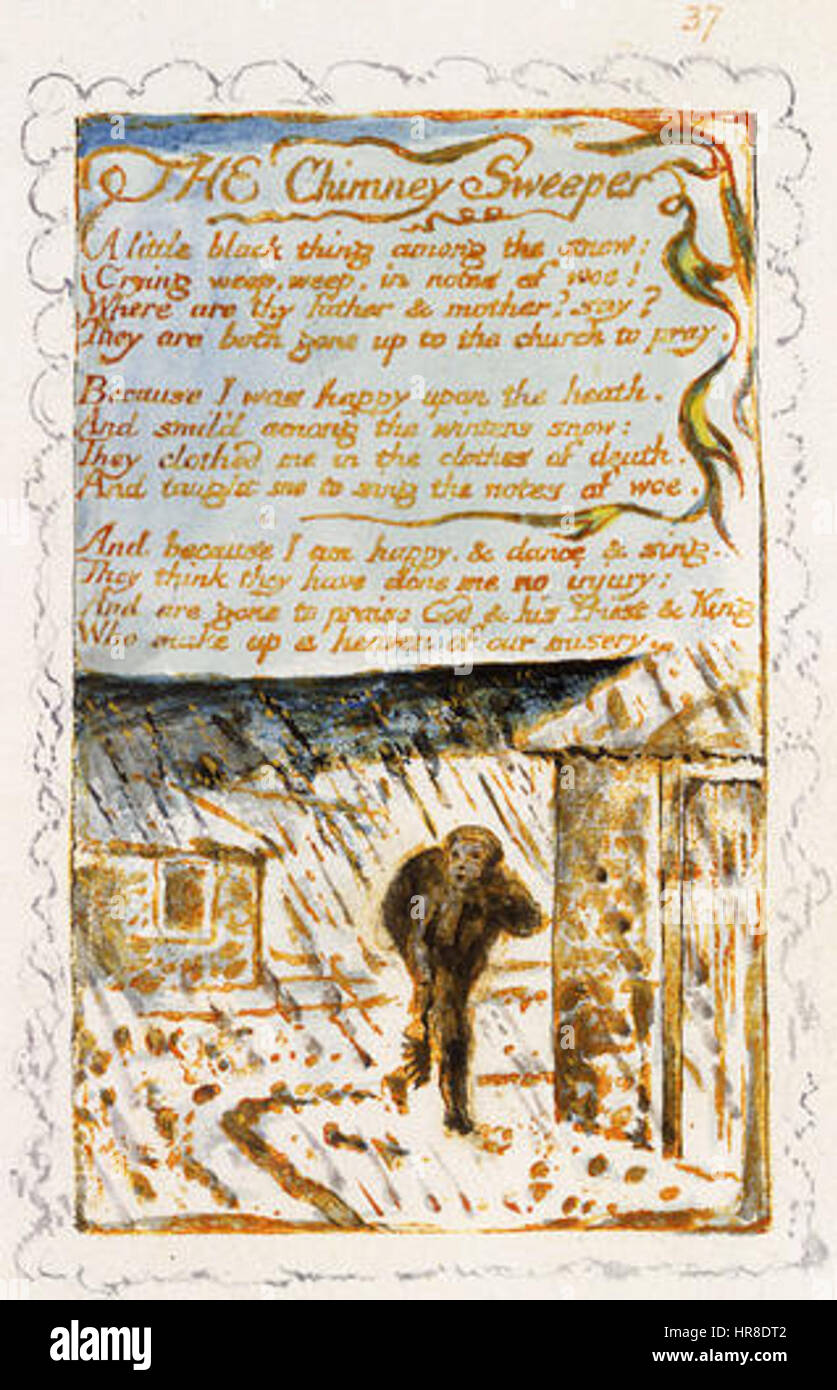 37
THE Chimney Sweeper
A little black thing among the snow:
Crying weep, weep, in notes of woe!
Where are thy father & mother? say?
They are both gone up to the church to pray.
Because I was happy upon the heath.
And smil'd among the winters snow:
They clothed me in the clothes of death.
And taught me to sing the notes of woe.
And because I am happy. & dance & sing.
They think they have done me no injury:
And are gone to praise God & his Priest & King
Who make up a heaven of our misery.
a
a
a
alamy
Image ID: HR8DT2
www.alamy.com